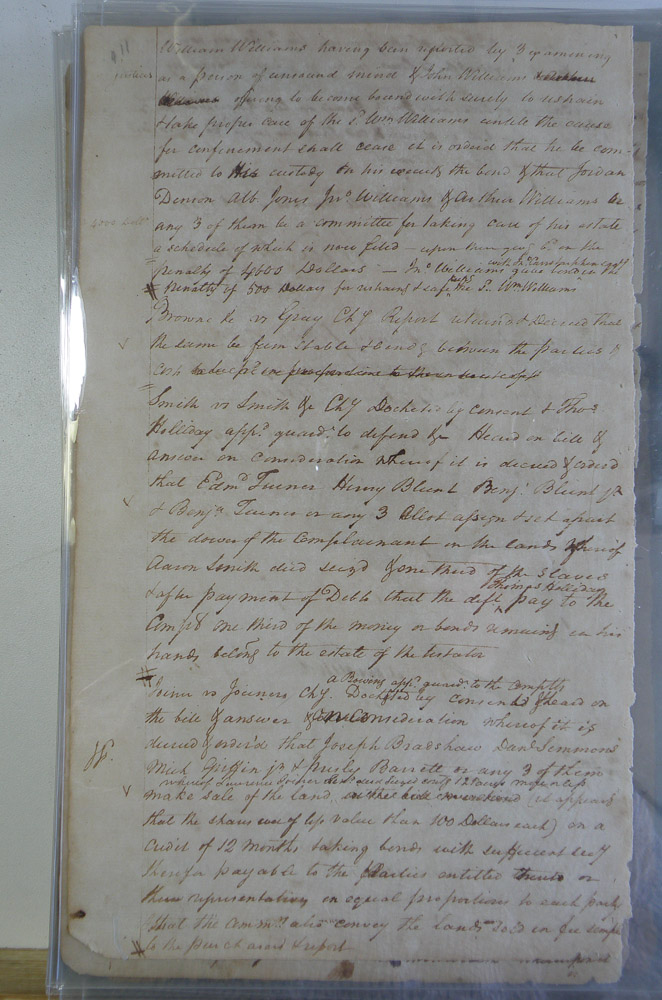 William Williams having been reported by 3 examining
as a person of unsound mind & John Williams
offering to become bound with surety to restrain
& take proper care of the sd Wm Williams untill the cause
for confinement shall cease it is ordered that he be com-
mitted to his custody on his executg the bond & that Jordan
Denson Alb Jones Jno Williams & Arthur Williams or
any 3 of them be a committee for taking care of his estate
a schedule of which is now filed — upon their givg bd in the
penalty of 4000 Dollars — Jno Williams gave bond in the
penalty of 500 Dollars for restraing & safe the sd Wm Williams
Browne &c vs Gray Chy Report returned & Decreed that
the same be firm stable & bindg between the parties &
costs
Smith vs Smith &c Chy Docketed by consent & Thos
Holliday appd guardn to defend &c Heard on bill &
answer on Consideration whereof it is decreed & orderd
that Edmd Turner Henry Blunt Benja Blunt jr
& Benja Turner or any 3 Allot assign & set apart
the dower of the Complainant in the lands whereof
Aaron Smith died seizd & one third of the slaves
& after payment of Debts that the deft Thomas Holliday pay to the
Complt one third of the money or bonds remaing in his
hands belong to the estate of the testator
a Bowing appd guardn to the Complts
Joiner vs Joiners Chy. Docketed by consent & heard on
the bill & answer & on Consideration whereof it is
decreed & order'd that Joseph Bradshaw Danl Simmons
Mich Griffin jr & Barrett or any 3 of them
whereof Lawrence Joiner died seized
make sale of the land (it appears
that the shares are of less value than 100 Dollars each) on a
credit of 12 months taking bonds with sufficient secy
therefor payable to the parties entitled thereto or
their representatives in equal proportions to each party
& that the Commrs also convey the lands sold in fee simple
to the purchaser & report